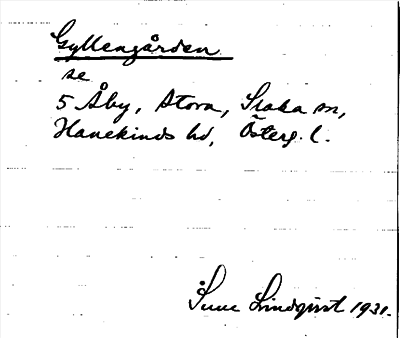 Gyllengården
se
5 Åby, Stora, Slaka sn,
Hanekinds hd, Österg. l.
Sune Lindqvist 1931.